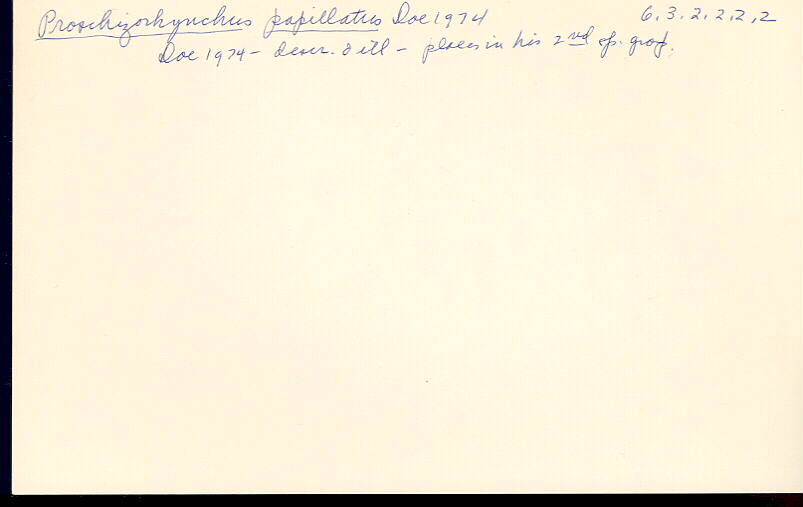 Proschizorhynchus papillatus Doe 1974 6.3.2.2.2.2
Doe 1974 - descr. & ill - places in his 2nd sp. group.